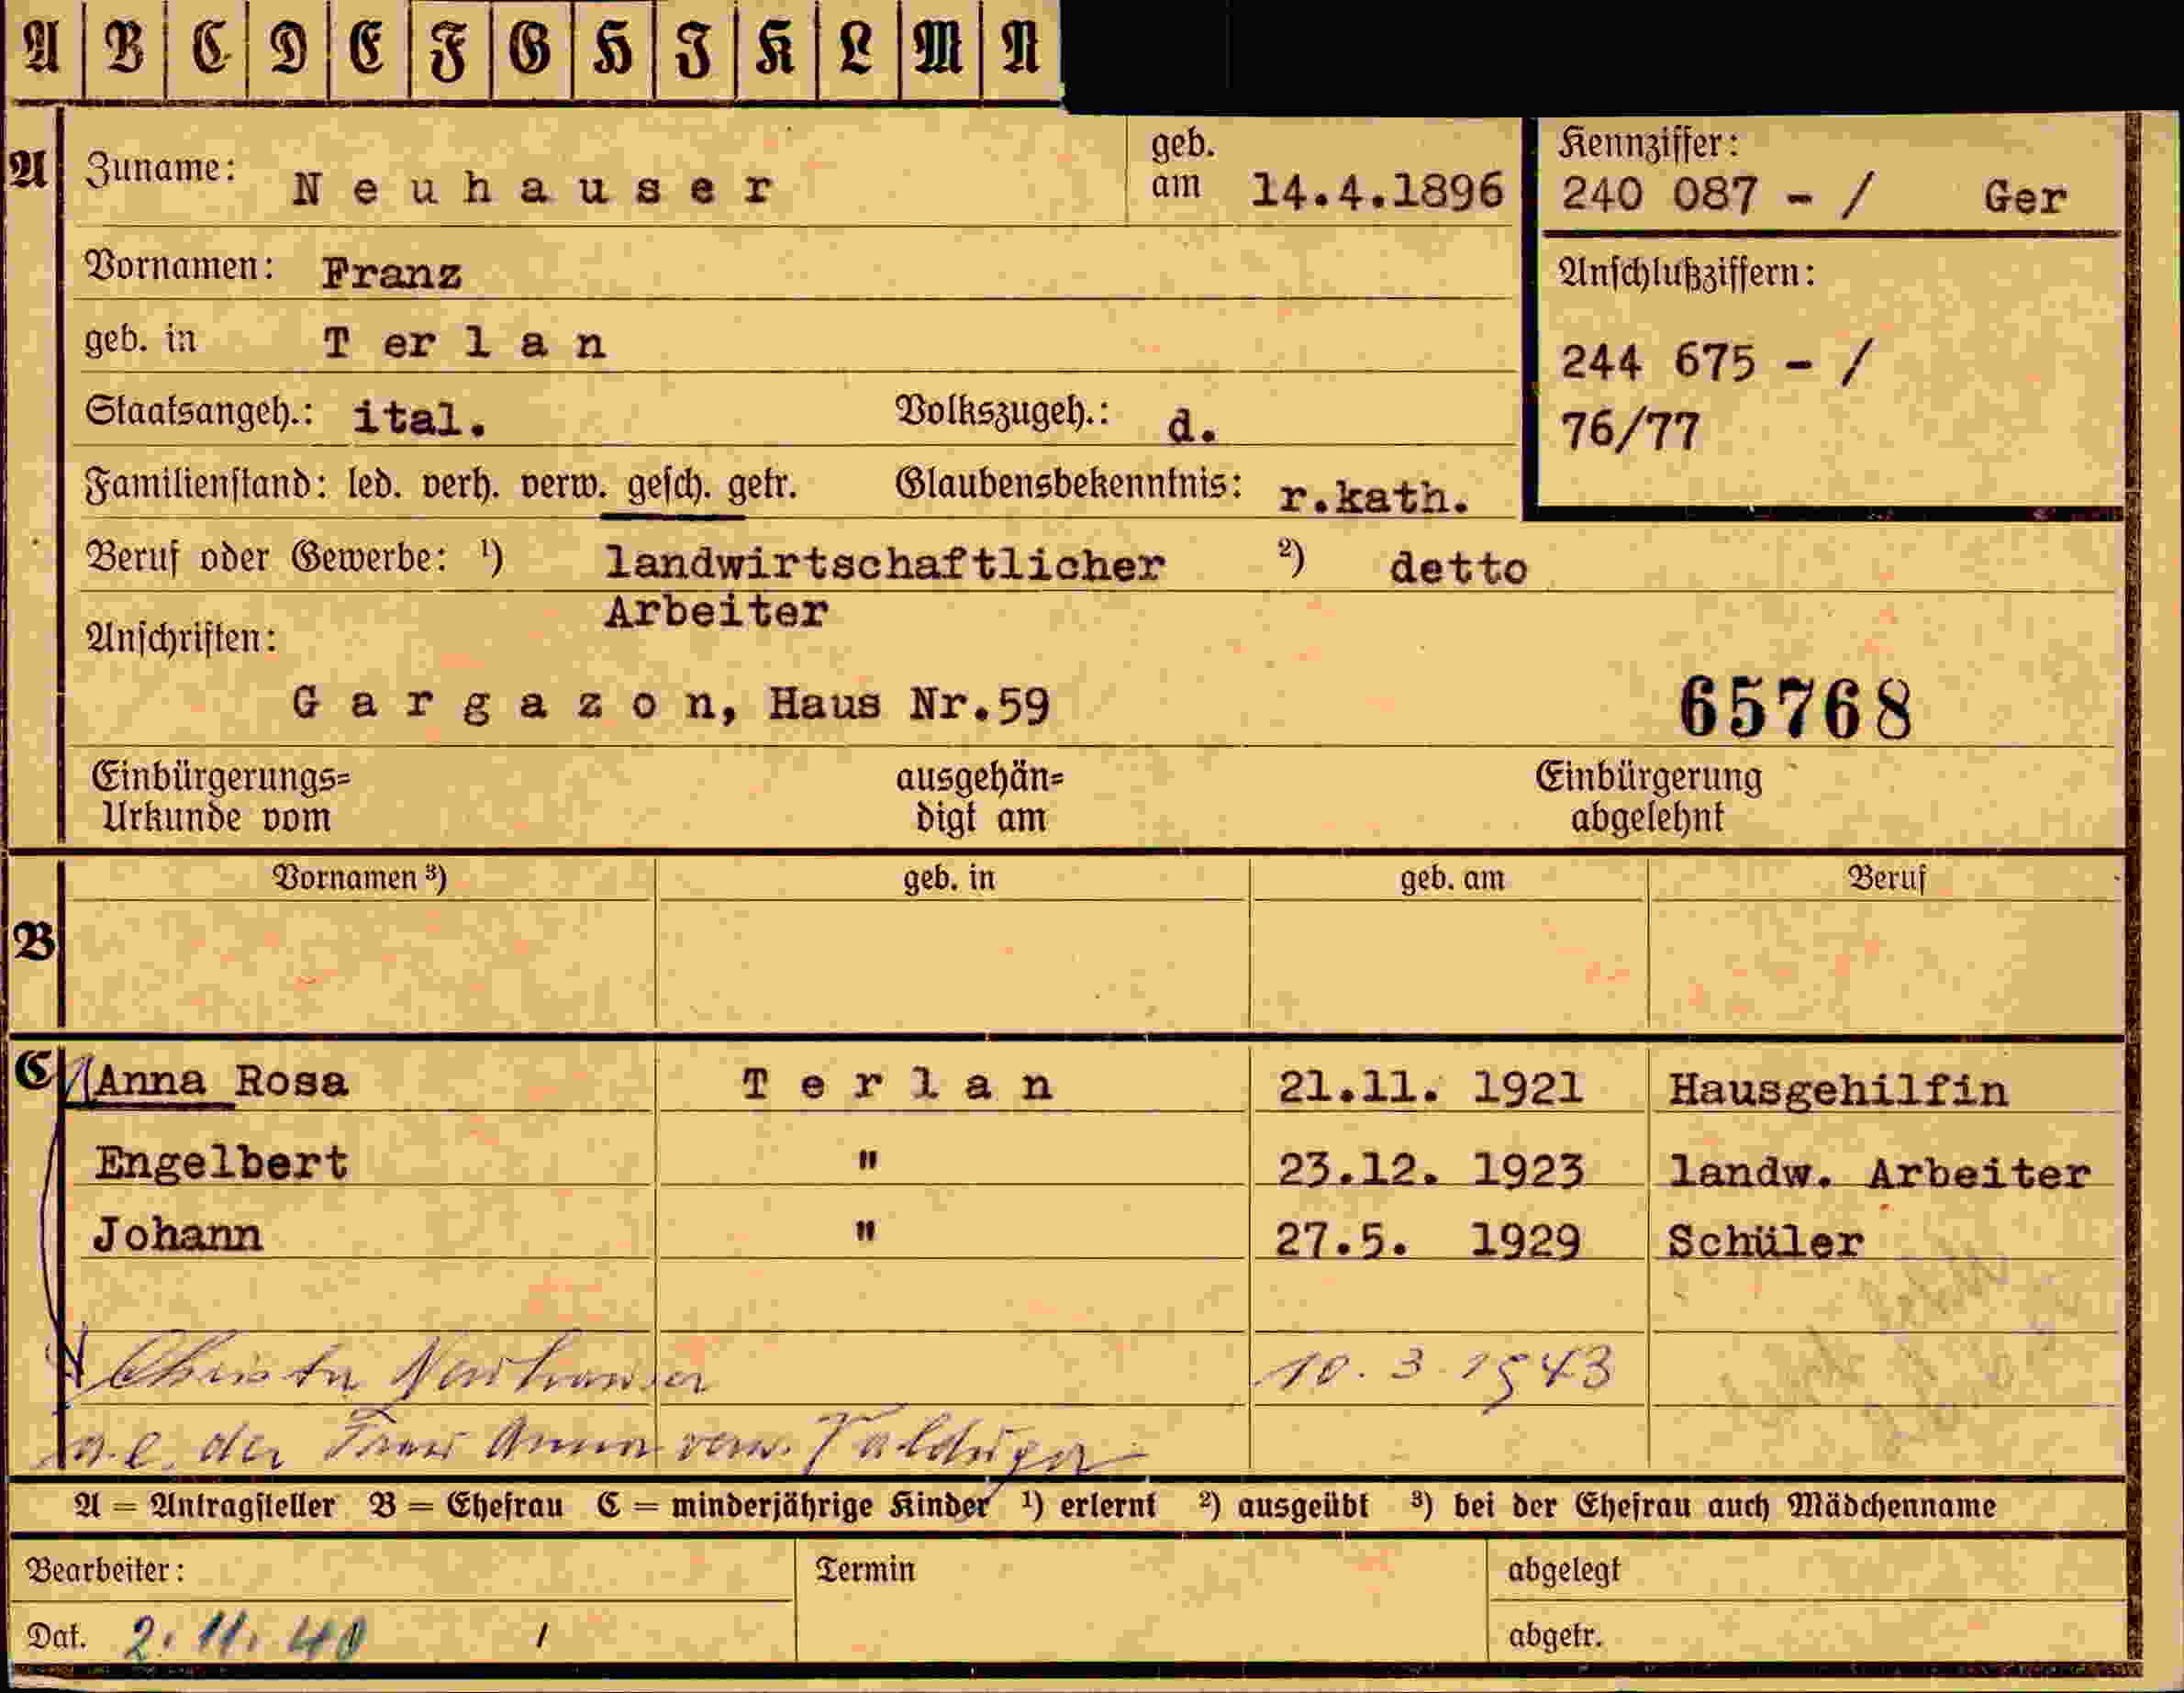 A B C D E F G H I K L M N
A Zuname: Neuhauser geb. am 14.4.1896
Kennziffer:
240 087 - / Ger
Vornamen: Franz
Anschlußziffern:
geb. in Terlan
244 675 - /
Staatsangeh.: ital. Volkszugeh.: d.
76/77
Familienstand: led. verh. verw. gesch. getr. Glaubensbekenntnis: r.kath.
Beruf oder Gewerbe: ¹) landwirtschaftlicher ²) detto
Arbeiter
Anschriften:
Gargazon, Haus Nr.59 65768
Einbürgerungs= ausgehän= Einbürgerung
Urkunde vom digt am abgelehnt
Vornamen ³) geb. in geb. am Beruf
B
C Anna Rosa Terlan 21.11. 1921 Hausgehilfin
Engelbert " 23.12. 1923 landw. Arbeiter
Johann " 27.5. 1929 Schüler
Christa Neuhauser 10.3.1943
a.e. der Frau Anna verw.
A = Antragsteller B = Ehefrau C = minderjährige Kinder ¹) erlernt ²) ausgeübt ³) bei der Ehefrau auch Mädchenname
Bearbeiter: Termin abgelegt
Dat. 2.11.40 / abgetr.